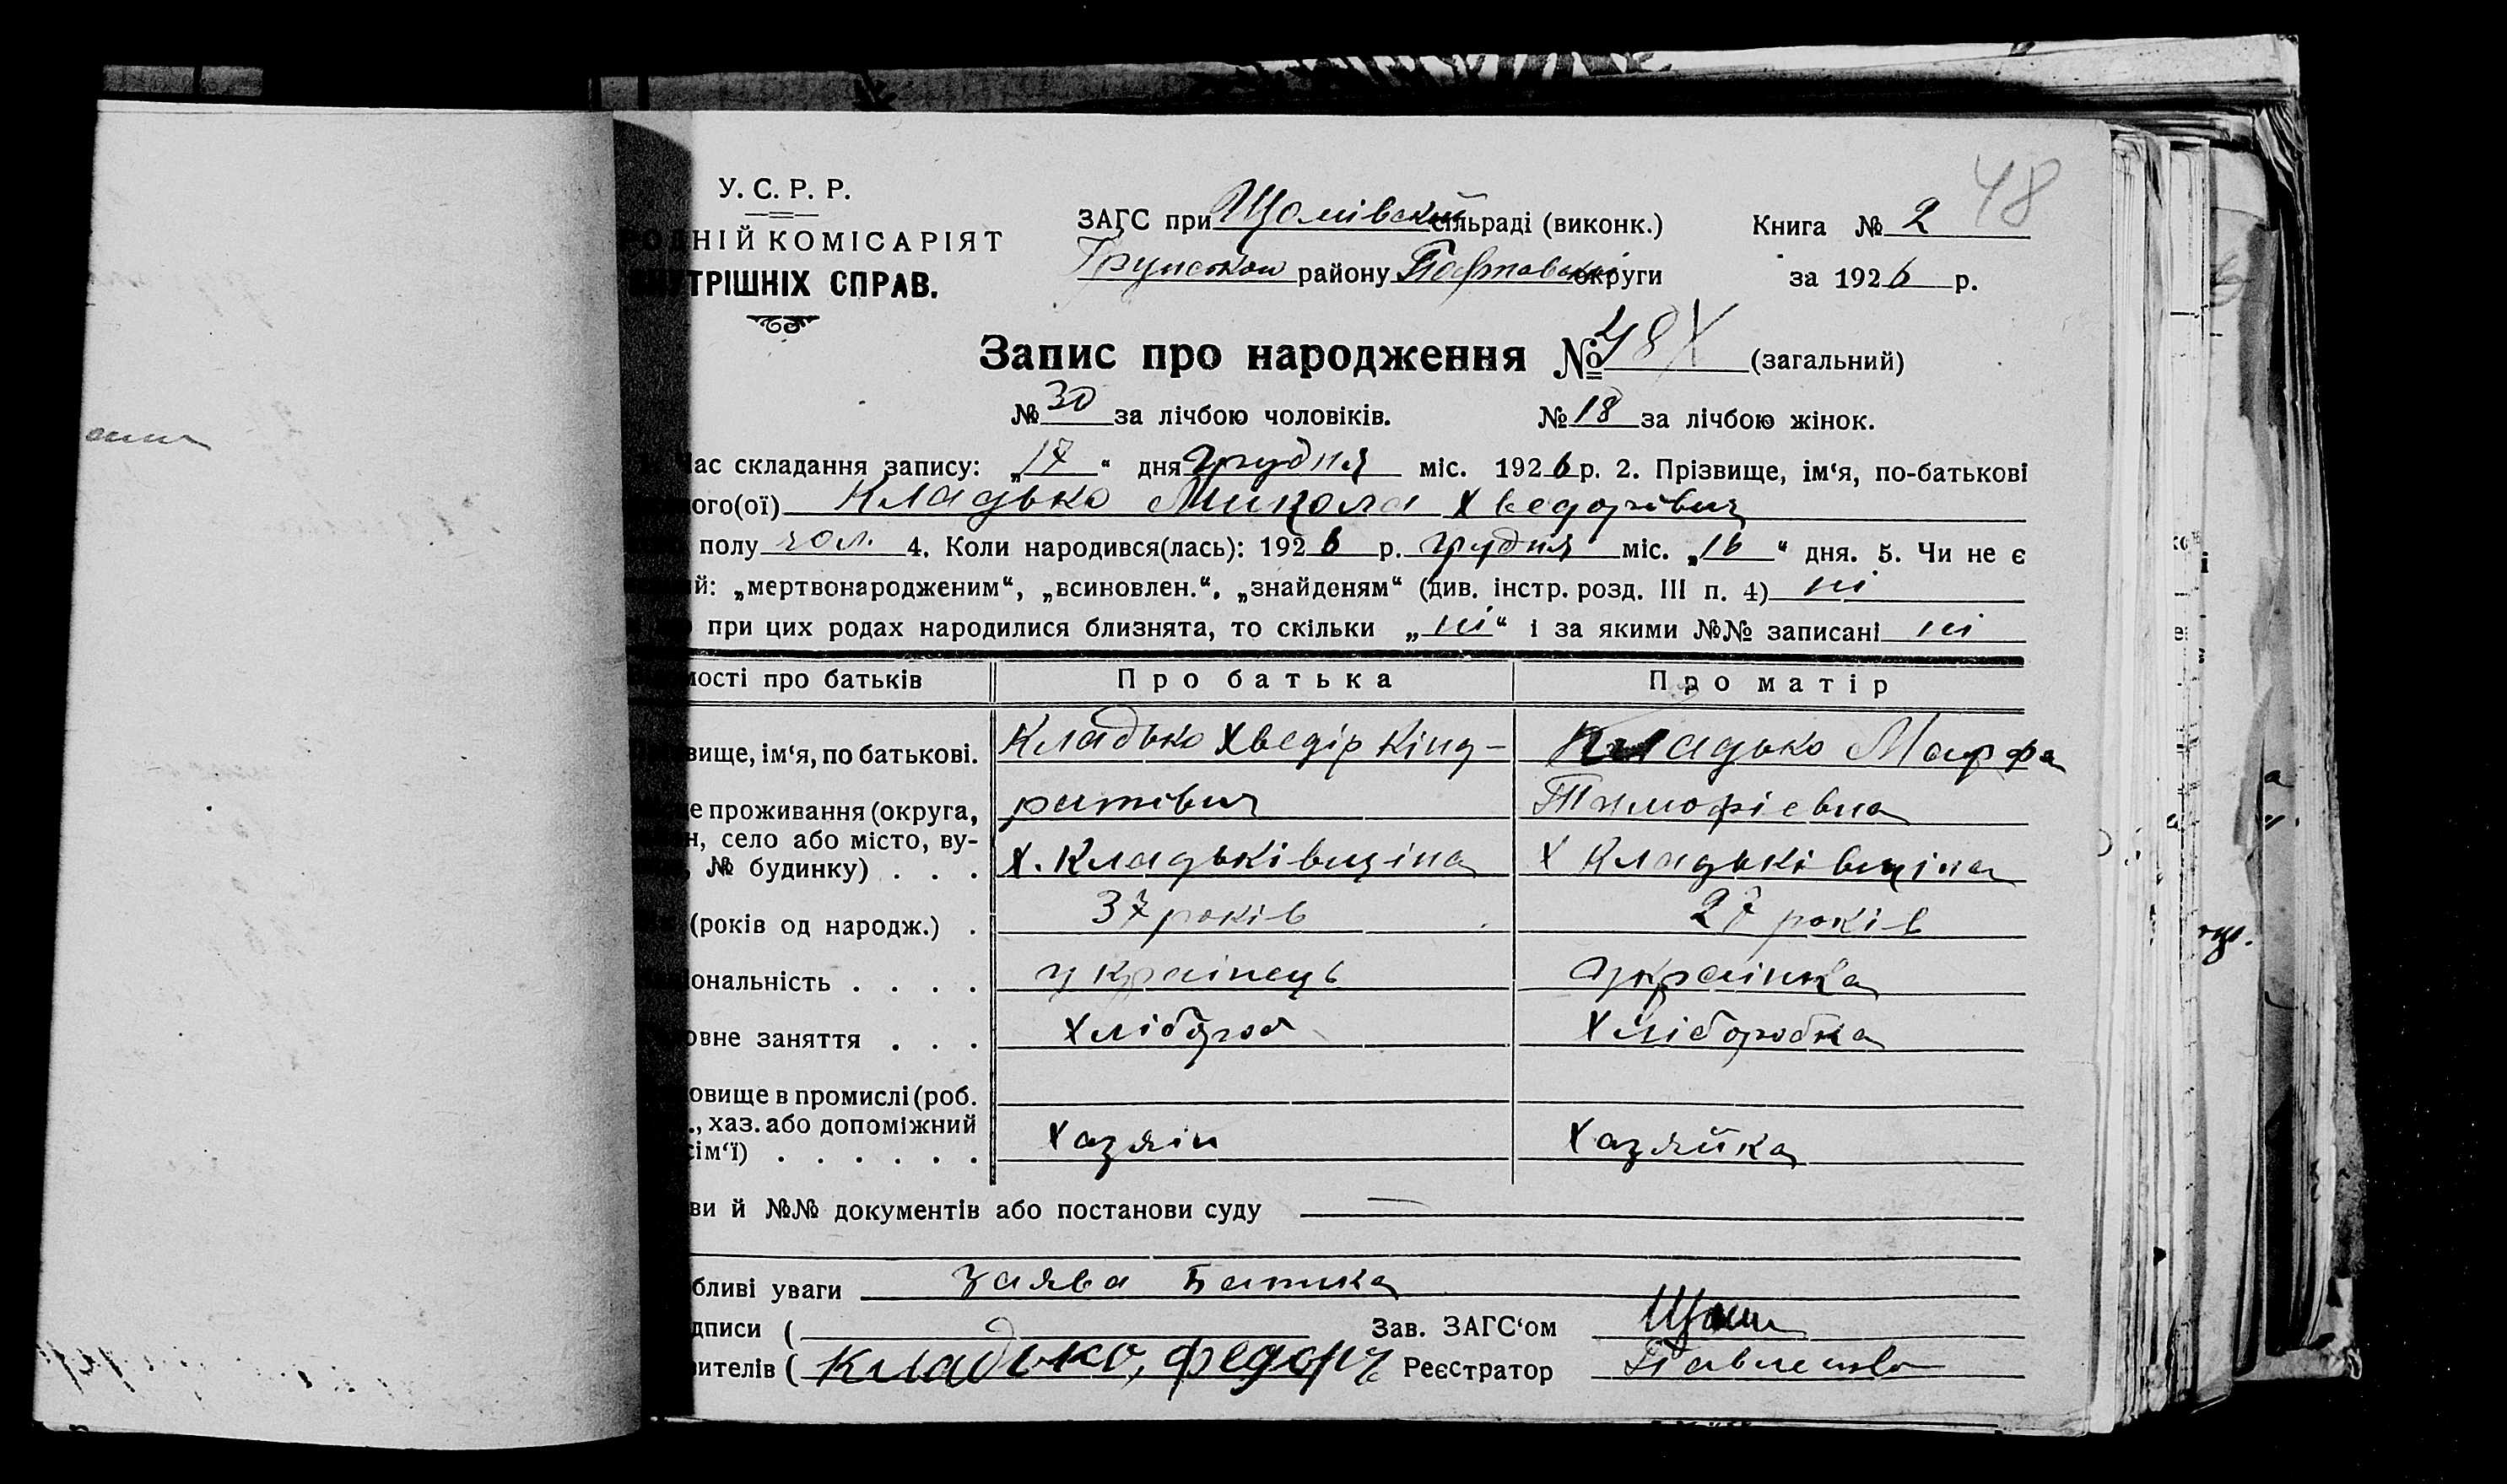 48
У. С. Р. Р.
РОДНІЙ КОМІСАРІЯТ
ВНУТРІШНІХ СПРАВ.
ЗАГС при сільраді (виконк.)
району округи
Книга № 2
за 1926 р.
Запис про народження № 48 (загальний)
№ 30 за лічбою чоловіків. № 18 за лічбою жінок.
час складання запису: „17“ дня грудня міс. 1926 р. 2. Прізвище, ім‘я, по-батькові
ого(ої) Кладько Микола Хведорівич
полу чол. 4. Коли народився(лась): 1926 р. грудня міс. „16“ дня. 5. Чи не є
й: „мертвонародженим“, „всиновлен.“, „знайденям“ (див. інстр. розд. III п. 4) ні
при цих родах народилися близнята, то скільки „ні“ і за якими №№ записані ні
мості про батьків Про батька Про матір
вище, ім‘я, по батькові. Кладько Хведір Кінд- Кладько Марфа
е проживання (округа, ратівич Тимофіевна
н, село або місто, ву-
№ будинку) . . . Х. Кладьківщіна Х Кладьківщіна
(років од народж.) . 37 років 27 років
ональність . . . . українець українка
овне заняття . . . Хлібороб Хліборобка
овище в промислі (роб.
., хаз. або допоміжний
сім‘ї) . . . . . . Хазяін Хазяйка
ви й №№ документів або постанови суду —
бливі уваги Заява Батька
дписи ( Зав. ЗАГС‘ом
вителів ( Кладько, Федор Реєстратор Павленко